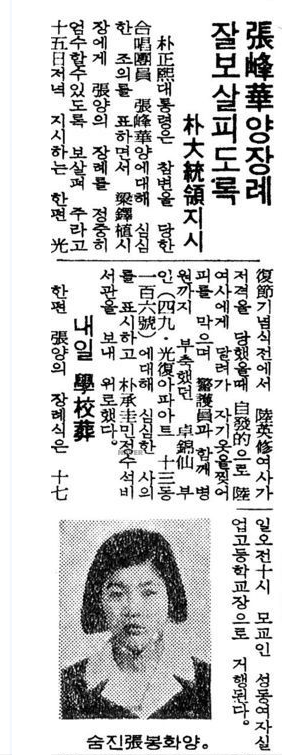 張峰華양장례
잘보살피도록
朴大統領지시
朴正熙대통령은 참변을 당한
合唱團員 張峰華양에대해 심심
한 조의를 표하면서 梁鐸植시
장에게 張양의 장례를 정중히
엄수할수있도록 보살펴 주라고
十五日저녁 지시하는 한편 光
復節기념식전에서 陸英修여사가
저격을 당했을때 自發的으로 陸
여사에게 달려가 자기옷을찢어
피를 막으며 警護員과 함께 병
원까지 부축했던 卓錦仙 부
인(四九·光復아파아트 十三동
一百六號)에대해 심심한 사의
를 표시하고 朴承圭민정수석비
서관을 보내 위로했다。
내일 學校葬
한편 張양의 장례식은 十七
일오전十시 모교인 성동여자실
업고등학교장으로 거행된다。
숨진張봉화양。